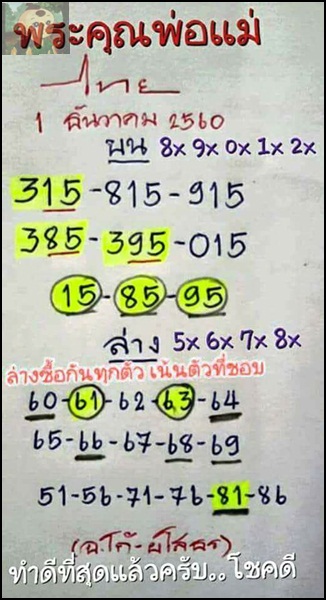 พระคุณพ่อแม่
ไทย
1 ธันวาคม 2560
บน 8x 9x 0x 1x 2x
315-815-915
385-395-015
15-85-95
ล่าง 5x 6x 7x 8x
ล่างซื้อกันทุกตัว เน้นตัวที่ชอบ
60-61-62-63-64
65-66-67-68-69
51-56-71-76-81-86
ทำดีที่สุดแล้วครับ.. โชคดี